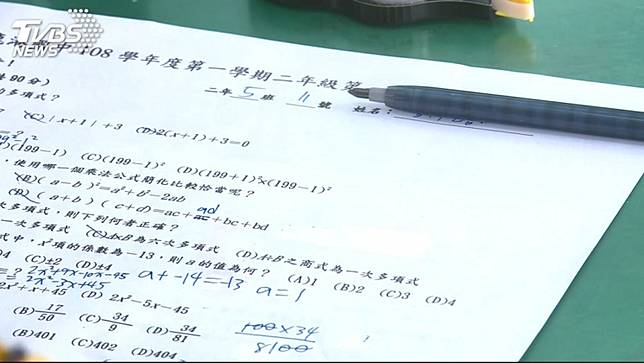 TVBS
NEWS
108學年度第一學期二年級第
共90分)
二年 5 班 11 號 姓名:
多項式?
(C)|x+1|+3 (D)2(x+1)+3=0
(199-1) (C)(199-1)² (D)(199+1)²x(199-1)²
,使用哪一個乘法公式簡化比較恰當呢?
(B)(a-b)²=a²+b²-2ab
(D)(a+b)(c+d)=ac+ad+bc+bd
次多項式,則下列何者正確?
一次多項式 (C)AxB為六次多項式 (D)A÷B之商式為一次多項式
式中,x²項的係數為-13,則a的值為何? (A)1 (B)2 (C)3 (D)4
(C)±2 (D)±4
2x²+9x-10x-45 a+-14=-13 a=1
+x+45 (D) 2x²-5x-45
(B) 17/50 (C) 34/9 (D) 34/81 100×34/8100
(B)401 (C)402 (D)404